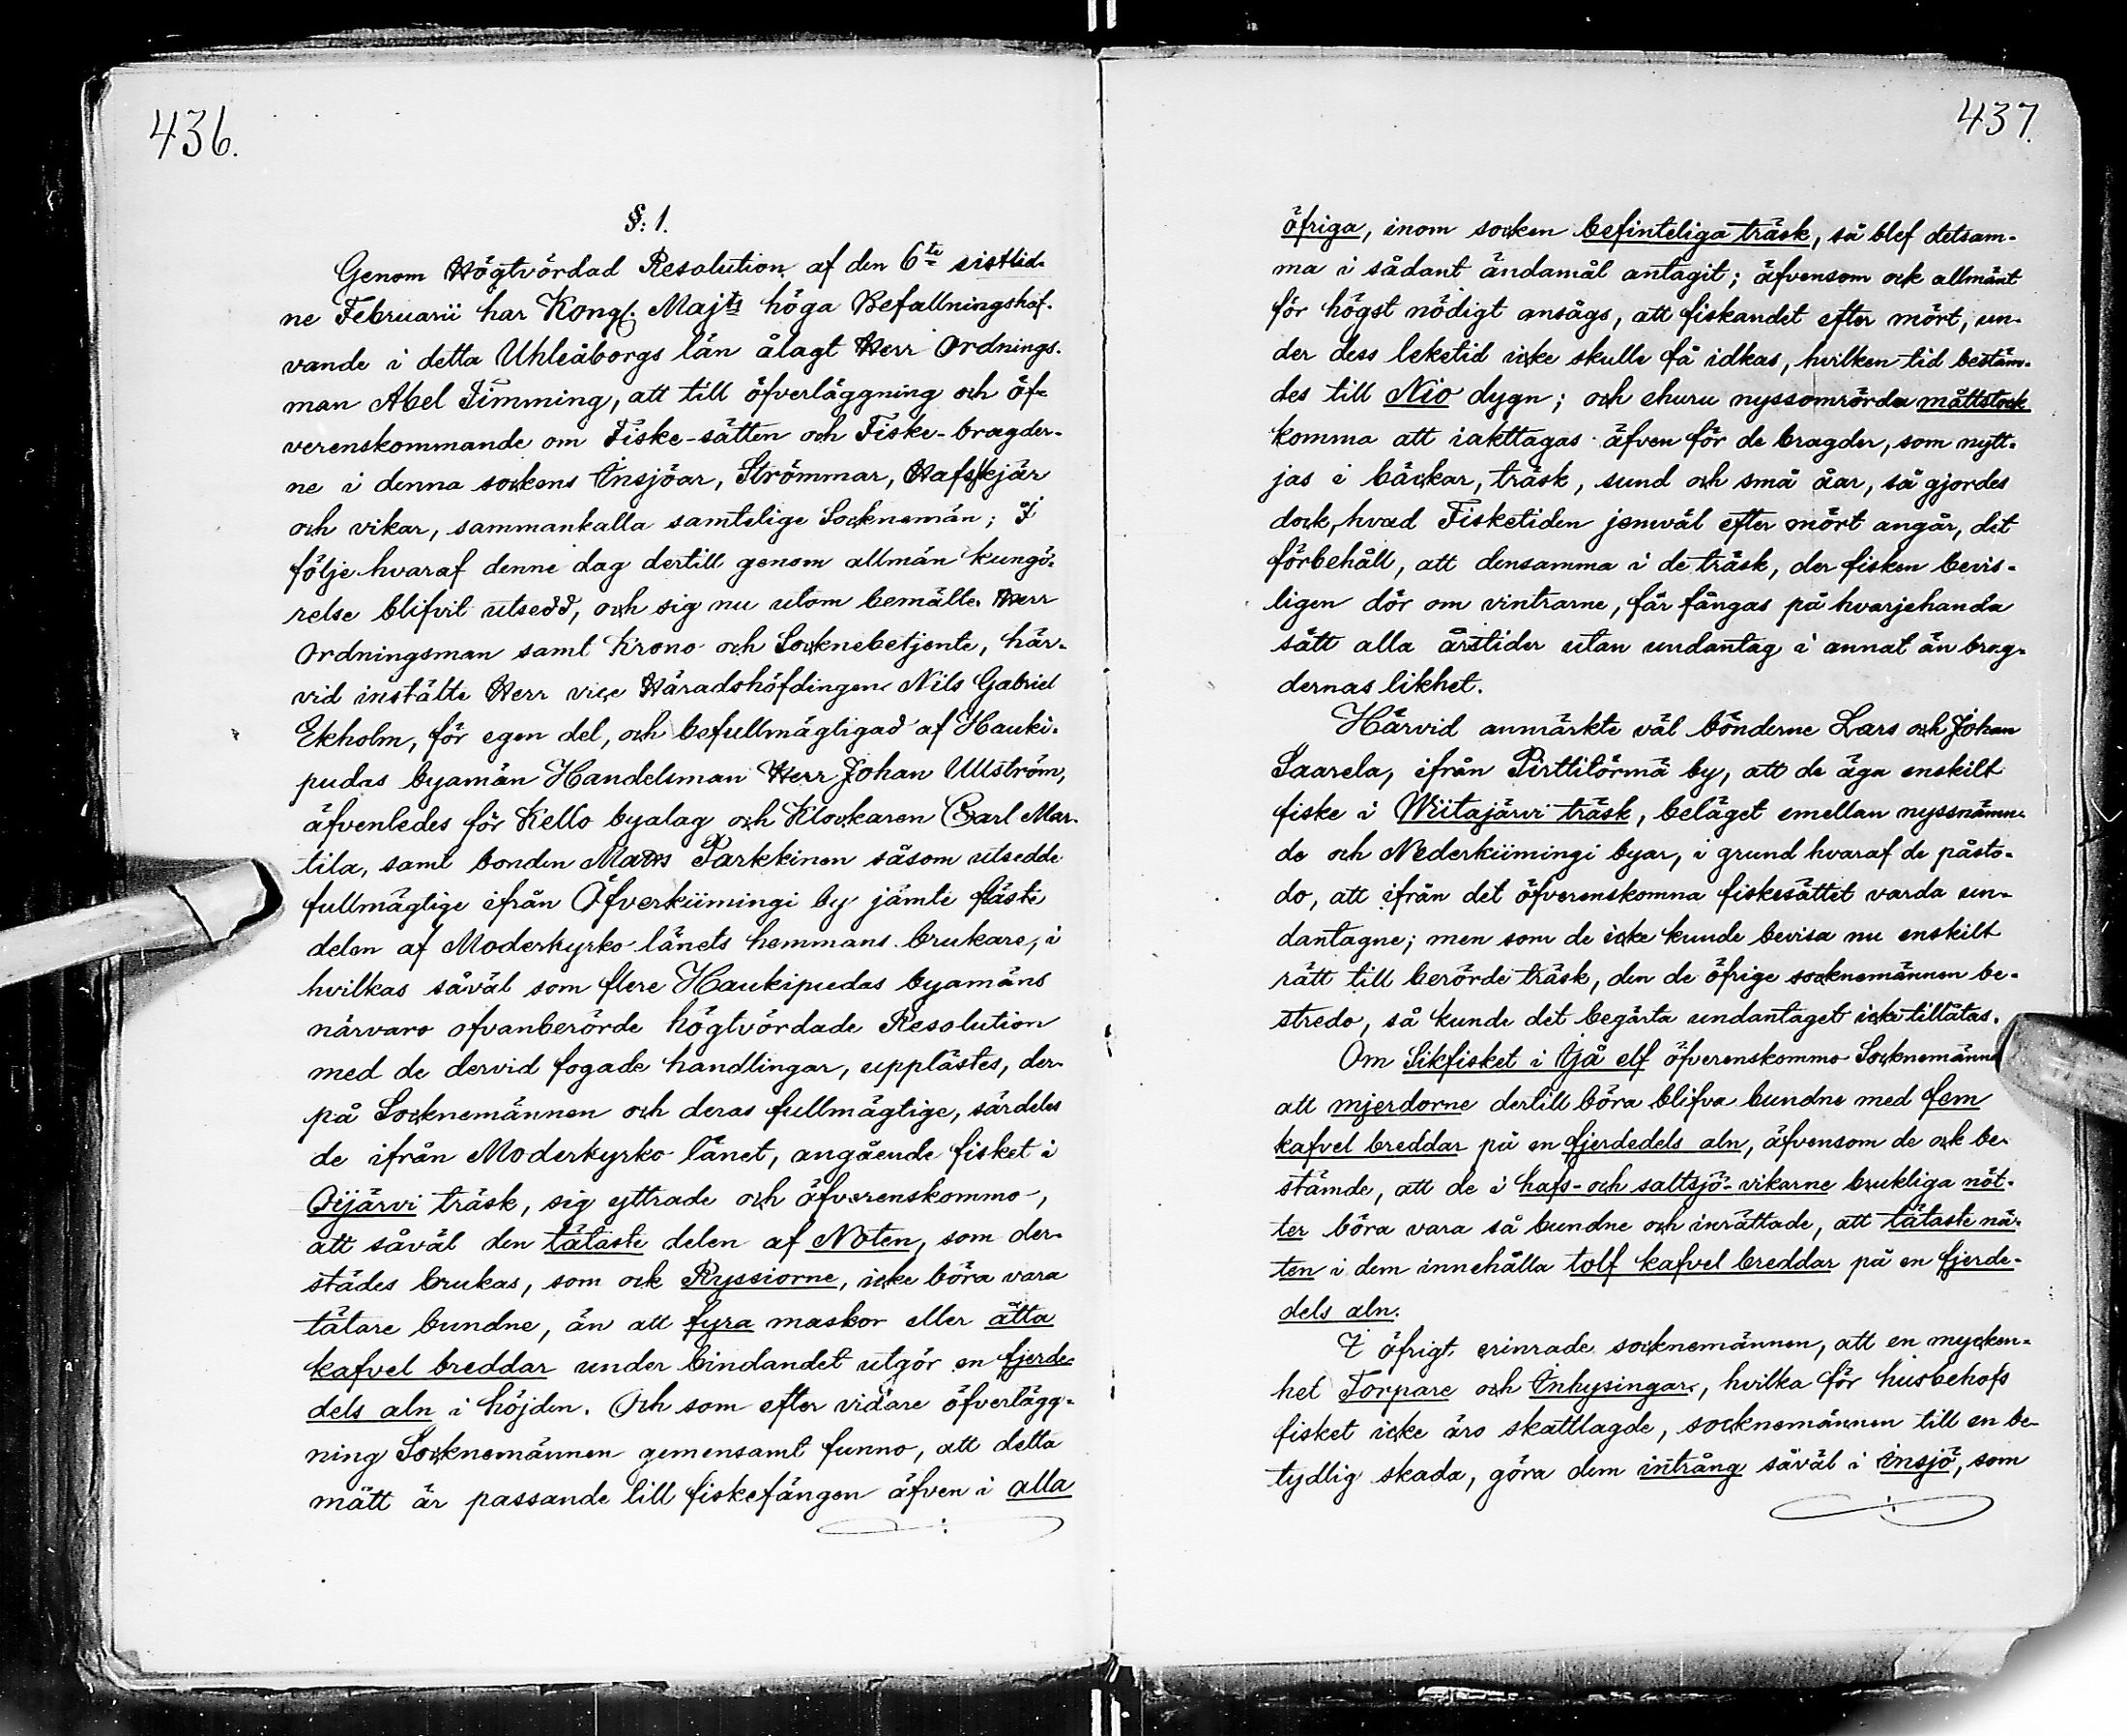 436.
§: 1.
Genom Högtvördad Resolution af den 6te sistlid-
ne Februarii har Kongl. Majts höga Befallningshaf-
vande i detta Uhleåborgs län ålagt Herr Ordnings-
man Abel Timming, att till öfverläggning och öf-
verenskommande om Fiske-sätten och Fiske-bragder-
ne i denna sockens Insjöar, Strömmar, Hafsskjär
och vikar, sammankalla samtelige Socknemän; I
följe hvaraf denne dag dertill genom allmän kungö-
relse blifvit utsedd, och sig nu utom bemälte Herr
Ordningsman samt Krono- och Socknebetjente, här-
vid instälte Herr vice Häradshöfdingen Nils Gabriel
Ekholm, för egen del, och befullmägtigad af Hauki-
pudas byamän Handelsman Herr Johan Ullström,
äfvenledes för Kello byalag och Klockaren Carl Mar-
tila, samt bonden Mats Parkkinen såsom utsedde
fullmägtige ifrån Öfverkiimingi by jämte fläste
delen af Moderkyrko-länets hemmans brukare, i
hvilkas såväl som flere Haukipudas byamäns
närvaro ofvanberörde högtvördade Resolution
med de dervid fogade handlingar, upplästes, der-
på Socknemännen och deras fullmägtige, särdeles
de ifrån Moderkyrko länet, angående fisket i
Oijärvi träsk, sig yttrade och öfverenskommo,
att såväl den tätaste delen af Noten, som der-
städes brukas, som ock Ryssiorne, icke böra vara
tätare bundne, än att fyra maskor eller åtta
kafvel breddar under bindandet utgör en fjerde-
dels aln i höjden. Och som efter vidare öfverlägg-
ning Socknemännen gemensamt funno, att detta
mått är passande till fiskefången äfven i alla
437.
öfriga, inom socken befinteliga träsk, så blef detsam-
ma i sådant ändamål antagit; äfvensom ock allmänt
för högst nödigt ansågs, att fiskandet efter mört, un-
der dess leketid icke skulle få idkas, hvilken tid bestäm-
des till Nio dygn; och ehuru nyssomrörda måttstock
komma att iakttagas äfven för de bragder, som nytt-
jas i bäckar, träsk, sund och små åar, så gjordes
dock, hvad Fisketiden jemväl efter mört angår, det
förbehåll, att densamma i de träsk, der fisken bevis-
ligen dör om vintrarne, får fångas på hvarjehanda
sätt alla årstider utan undantag i annat än brag-
dernas likhet.
Härvid anmärkte väl bönderne Lars och Johan
Saarela, ifrån Pirttitörmä by, att de äga enskilt
fiske i Wiitajärvi träsk, beläget emellan nyssnämn-
de och Nederkiimingi byar, i grund hvaraf de påsto-
do, att ifrån det öfverenskomna fiskesättet varda un-
dantagne; men som de icke kunde bevisa nu enskilt
rätt till berörde träsk, den de öfrige socknemännen be-
stredo, så kunde det begärta undantaget icke tillåtas.
Om Sikfisket i Ijå elf öfverenskommo Socknemänne
att mjerdorne dertill böra blifva bundne med fem
kafvel breddar på en fjerdedels aln, äfvensom de ock be-
stämde, att de i hafs- och saltsjö-vikarne brukliga nöt-
ter böra vara så bundne och inrättade, att tätaste nä-
ten i dem innehålla tolf kafvel breddar på en fjerde-
dels aln.
I öfrigt erinrade socknemännen, att en mycken-
het Torpare och Inhysingar, hvilka för husbehofs
fisket icke äro skattlagde, socknemännen till en be-
tydlig skada, göra dem intrång såväl i insjö, som